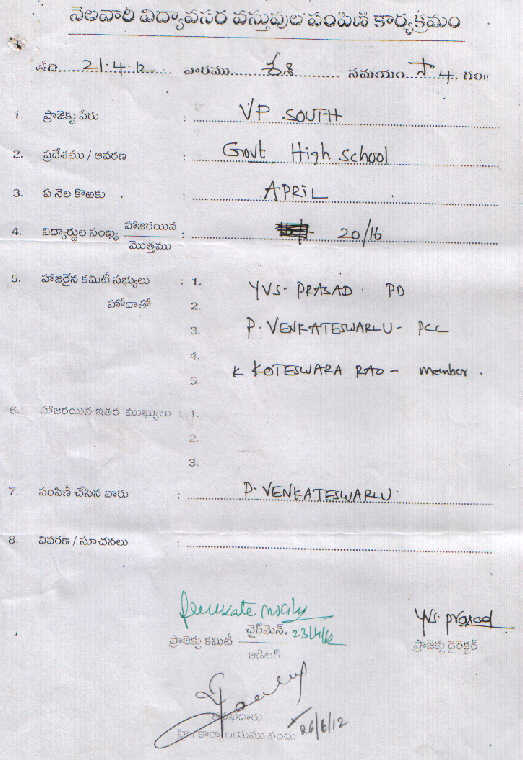 నెలవారీ విద్యావసర వస్తువుల పంపిణీ కార్యక్రమం
తేది 21.4.12 వారము శని సమయం సా 4 గం॥
1. ప్రాజెక్టు పేరు : VP SOUTH
2. ప్రదేశము / ఆవరణ : Govt High School
3. ఏ నెల కొఱకు : APRIL
4. విద్యార్థుల సంఖ్య హాజరయినవి / మొత్తము : 20/16
5. హాజరైన కమిటీ సభ్యులు : 1. YVS. PRASAD PD
హోదాతో 2.
3. P. VENKATESWARLU - PCC
4.
5. K KOTESWARA RAO - Member.
6. హాజరయిన ఇతర ముఖ్యులు : 1.
2.
3.
7. పంపిణీ చేసిన వారు : P. VENKATESWARLU.
8. వివరణ / సూచనలు :
ప్రాజెక్టు కమిటీ చైర్‌మెన్. 23/4/12
ఆడిటర్
YVS. Prasad
ప్రాజెక్టు డైరెక్టర్
26/6/12